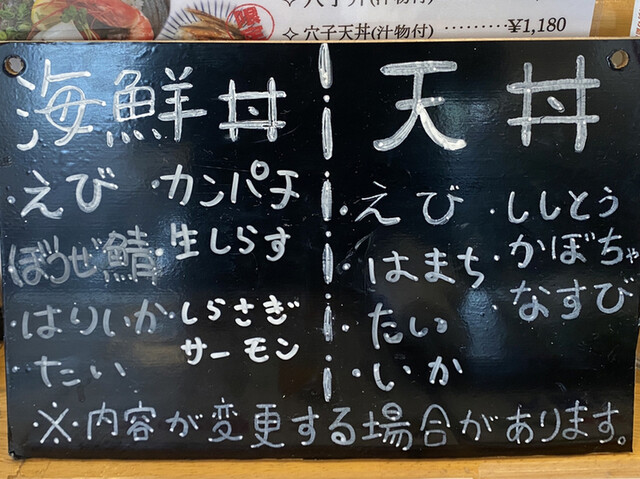 穴子天丼(汁物付) ¥1,180
海鮮丼
・えび ・カンパチ
ぼうぜ鯖 ・生しらす
・はりいか ・しらさぎサーモン
・たい
天丼
・えび ・ししとう
・はまち ・かぼちゃ
・たい ・なすび
・いか
・※・内容が変更する場合があります。